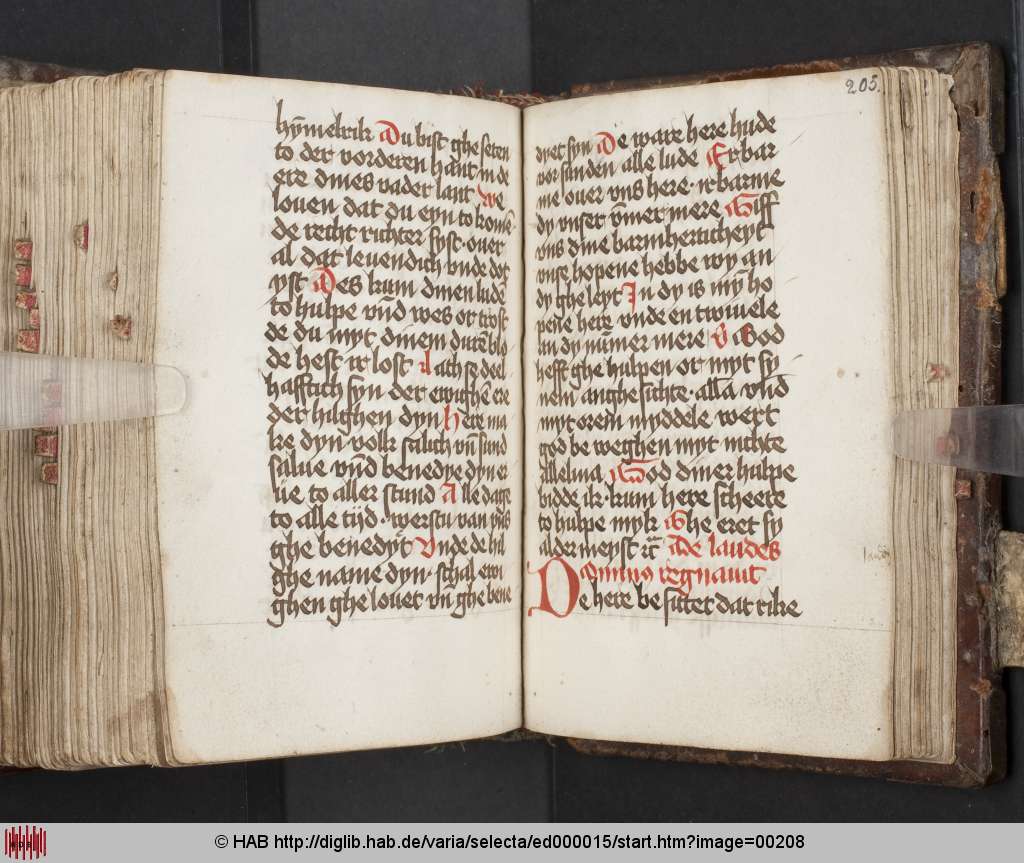 hȳmelrik Du bist ghe seten
to der vorderen hant in de
ere dines vader lant We
louen dat du eyn to komē
de recht richter syst · ouer
al dat leuendich vnde dot
yst Des kum dinen ludē
to hulpe vn̄d wes or trost
de du myt dinem durē blo
de hest ir lost Lach se deel
hafftich syn der ewighē ere
der hilghen dyn Here ma
ke dyn volk salich vn̄ sund
salue vn̄d benedye dyn er
ue to aller stund Alle dage
to alle tijd · werstu van vns
ghe benedyt Vnde de hil
ghe name dyn · schal ewi
ghen ghe louet vn̄ ghe bene
205.
dyet syn De ware here hude
vor sunden alle lude Er bar
me ouer vns here · ir barme
dy vnser v̄mer mere Giff
vns dine barmherticheyt
wse hopene hebbe wy an
dy ghe leyt In dy is mȳ ho
pene here vnde en twiuele
an dy nūmer mere V God
hefft ghe hulpen or myt sy
nem anghesichte · allā vn̄d
myt orem myddele wert
god be weghen myt nichte
alleluia God diner hulpe
bidde ik · kum here scheere
to hulpe myk Ghe eret sy
alder meyst rc̄ To laudes
Dominus regnauit
De here be sittet dat rike
© HAB http://diglib.hab.de/varia/selecta/ed000015/start.htm?image=00208